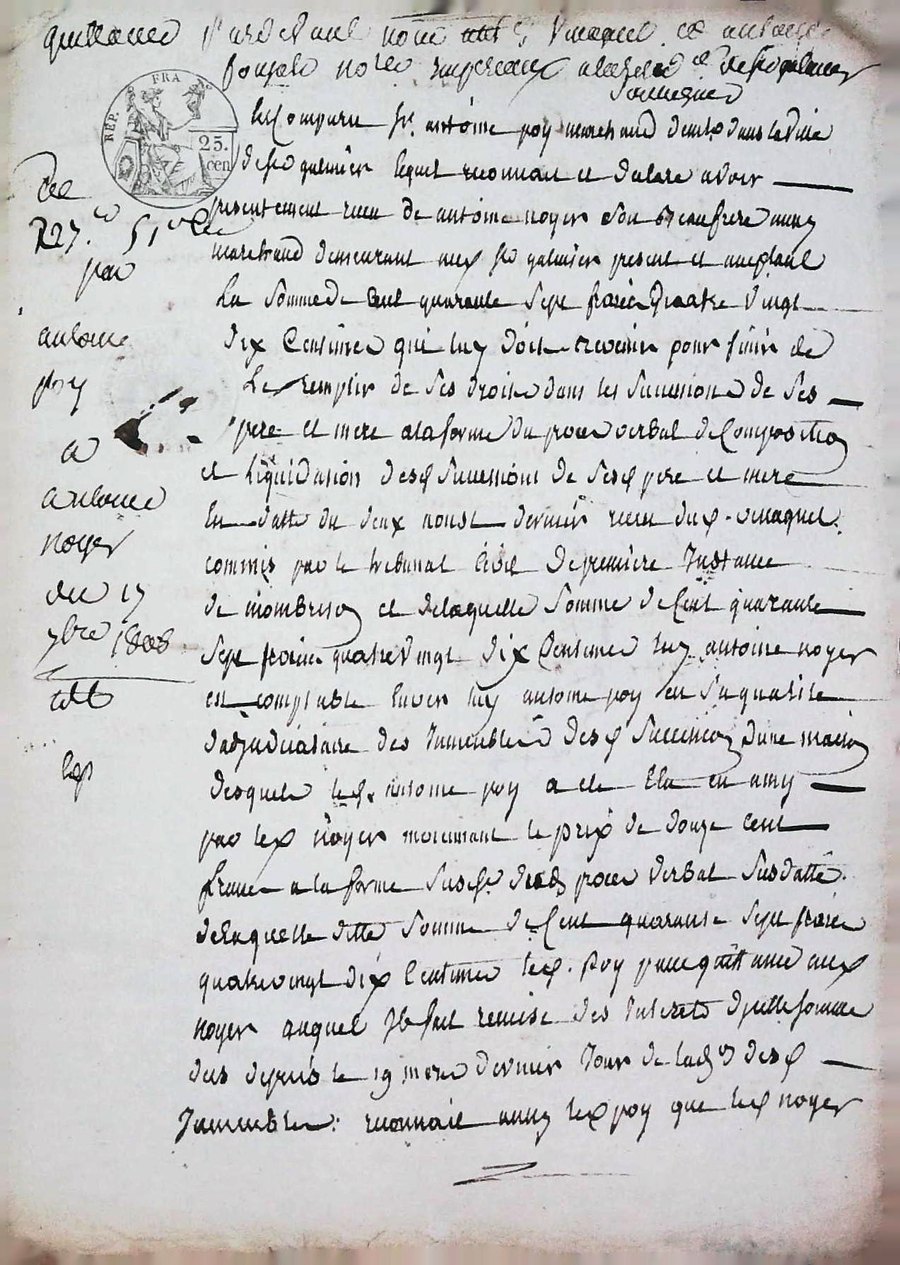 quittance
Pardevant nous
notres imperiaux
soussignés
REP. FRA
25.
cen
Est Comparu Sr. antoine poy marchand demt dans la ville
de St galmier lequel reconnait et declare avoir
presentement recu de antoine noyer son beaufrere aussy
marchand demeurant aux St galmier present et acceptant
La Somme de Cent quarante Sept francs quatre vingt
dix Centimes qui luy doit revenir pour finir de
Le remplir de ses droits dans les Successions de ses
pere et mere a la forme du proces verbal de Composition
et liquidation desd Successions de sesd pere et mere
En datte du deux aoust dernier recu dud
commis par le tribunal Civil de premiere Instance
de montbrison et de laquelle Somme de Cent quarante
Sept francs quatre vingt dix Centimes luy antoine noyer
est comptable Envers luy antoine poy en Sa qualité
d'adjudicataire des Immeubles desd Successions d'une maison
desquels led. antoine poy a été Elu en amy
par led noyer moyennant le prix de douze cent
francs a la forme dud proces verbal Susdatté.
de laquelle ditte Somme de Cent quarante Sept francs
quatre vingt dix Centimes led. Poy passe quittance aud
noyer auquel Il fait remise des Interets de ditte Somme
dus depuis le 19 mars dernier Jour de desd
Immeubles: reconnait aussy led poy que led noyer
De
par
antoine
poy
a
antoine
noyer
du 17
7bre 1808